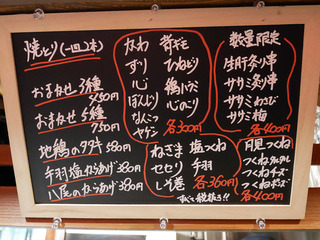 焼とり(一皿2本)
おまかせ 3種
450円
おまかせ 5種
750円
地鶏のタタキ 580円
手羽塩からあげ 380円
八尾のからあげ 380円
かわ
ずり
心
ぼんじり
なんこつ
ヤゲン
背ギモ
ひねどり
鶏ハラミ
心のこり
各300円
数量限定
生肝炙り串
ササミ炙り串
ササミわさび
ササミ梅
各400円
ねぎま
セセリ
しそ巻
塩つくね
手羽
各360円
すべて税抜き!!
月見つくね
つくねタルタル
つくねチーズ
つくねポンズ
各400円